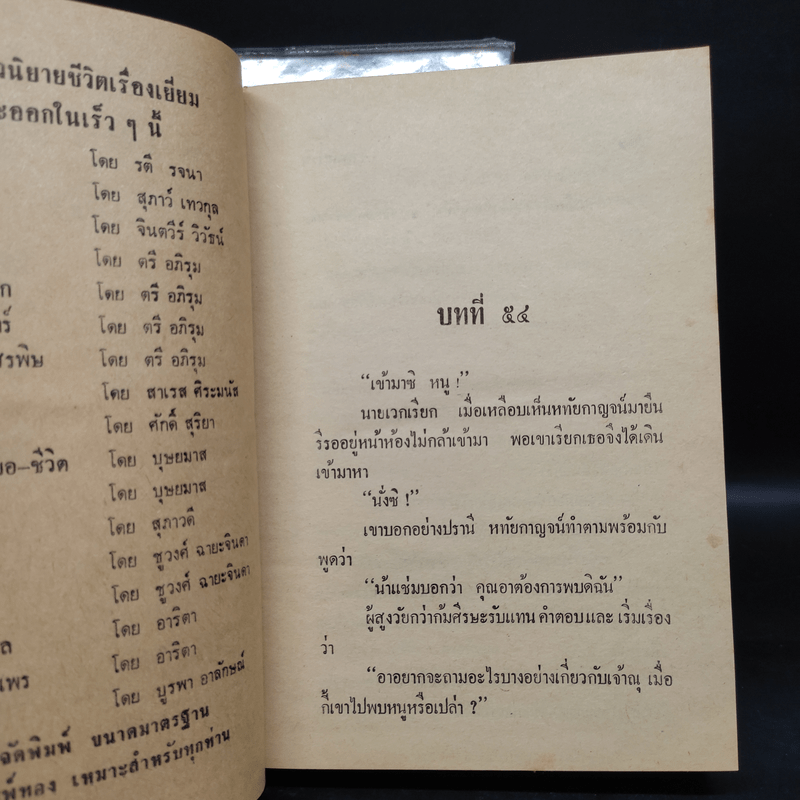 นิยายชีวิตเรื่องเยี่ยม
ออกในเร็ว ๆ นี้
โดย รตี รจนา
โดย สุภาว์ เทวกุล
โดย จินตวีร์ วิวัธน์
โดย ตรี อภิรุม
ก โดย ตรี อภิรุม
ร์ โดย ตรี อภิรุม
สรพิษ โดย ตรี อภิรุม
โดย สาเรส ศิระมนัส
โดย ศักดิ์ สุริยา
อ–ชีวิต โดย บุษยมาส
โดย บุษยมาส
โดย สุภาวดี
โดย ชูวงศ์ ฉายะจินดา
โดย ชูวงศ์ ฉายะจินดา
ล โดย อาริตา
แพร โดย อาริตา
โดย บูรพา อาลักษณ์
จัดพิมพ์ ขนาดมาตรฐาน
พ์ทอง เหมาะสำหรับทุกท่าน
บทที่ ๕๔
“เข้ามาซิ หนู !”
นายเวกเรียก เมื่อเหลือบเห็นหทัยกาญจน์มายืน
รีรออยู่หน้าห้องไม่กล้าเข้ามา พอเขาเรียกเธอจึงได้เดิน
เข้ามาหา
“นั่งซิ !”
เขาบอกอย่างปรานี หทัยกาญจน์ทำตามพร้อมกับ
พูดว่า
“น้าแช่มบอกว่า คุณอาต้องการพบดิฉัน”
ผู้สูงวัยกว่าก้มศีรษะรับแทน คำตอบ และ เริ่มเรื่อง
ว่า
“อาอยากจะถามอะไรบางอย่างเกี่ยวกับเจ้าณุ เมื่อ
กี้เขาไปพบหนูหรือเปล่า ?”